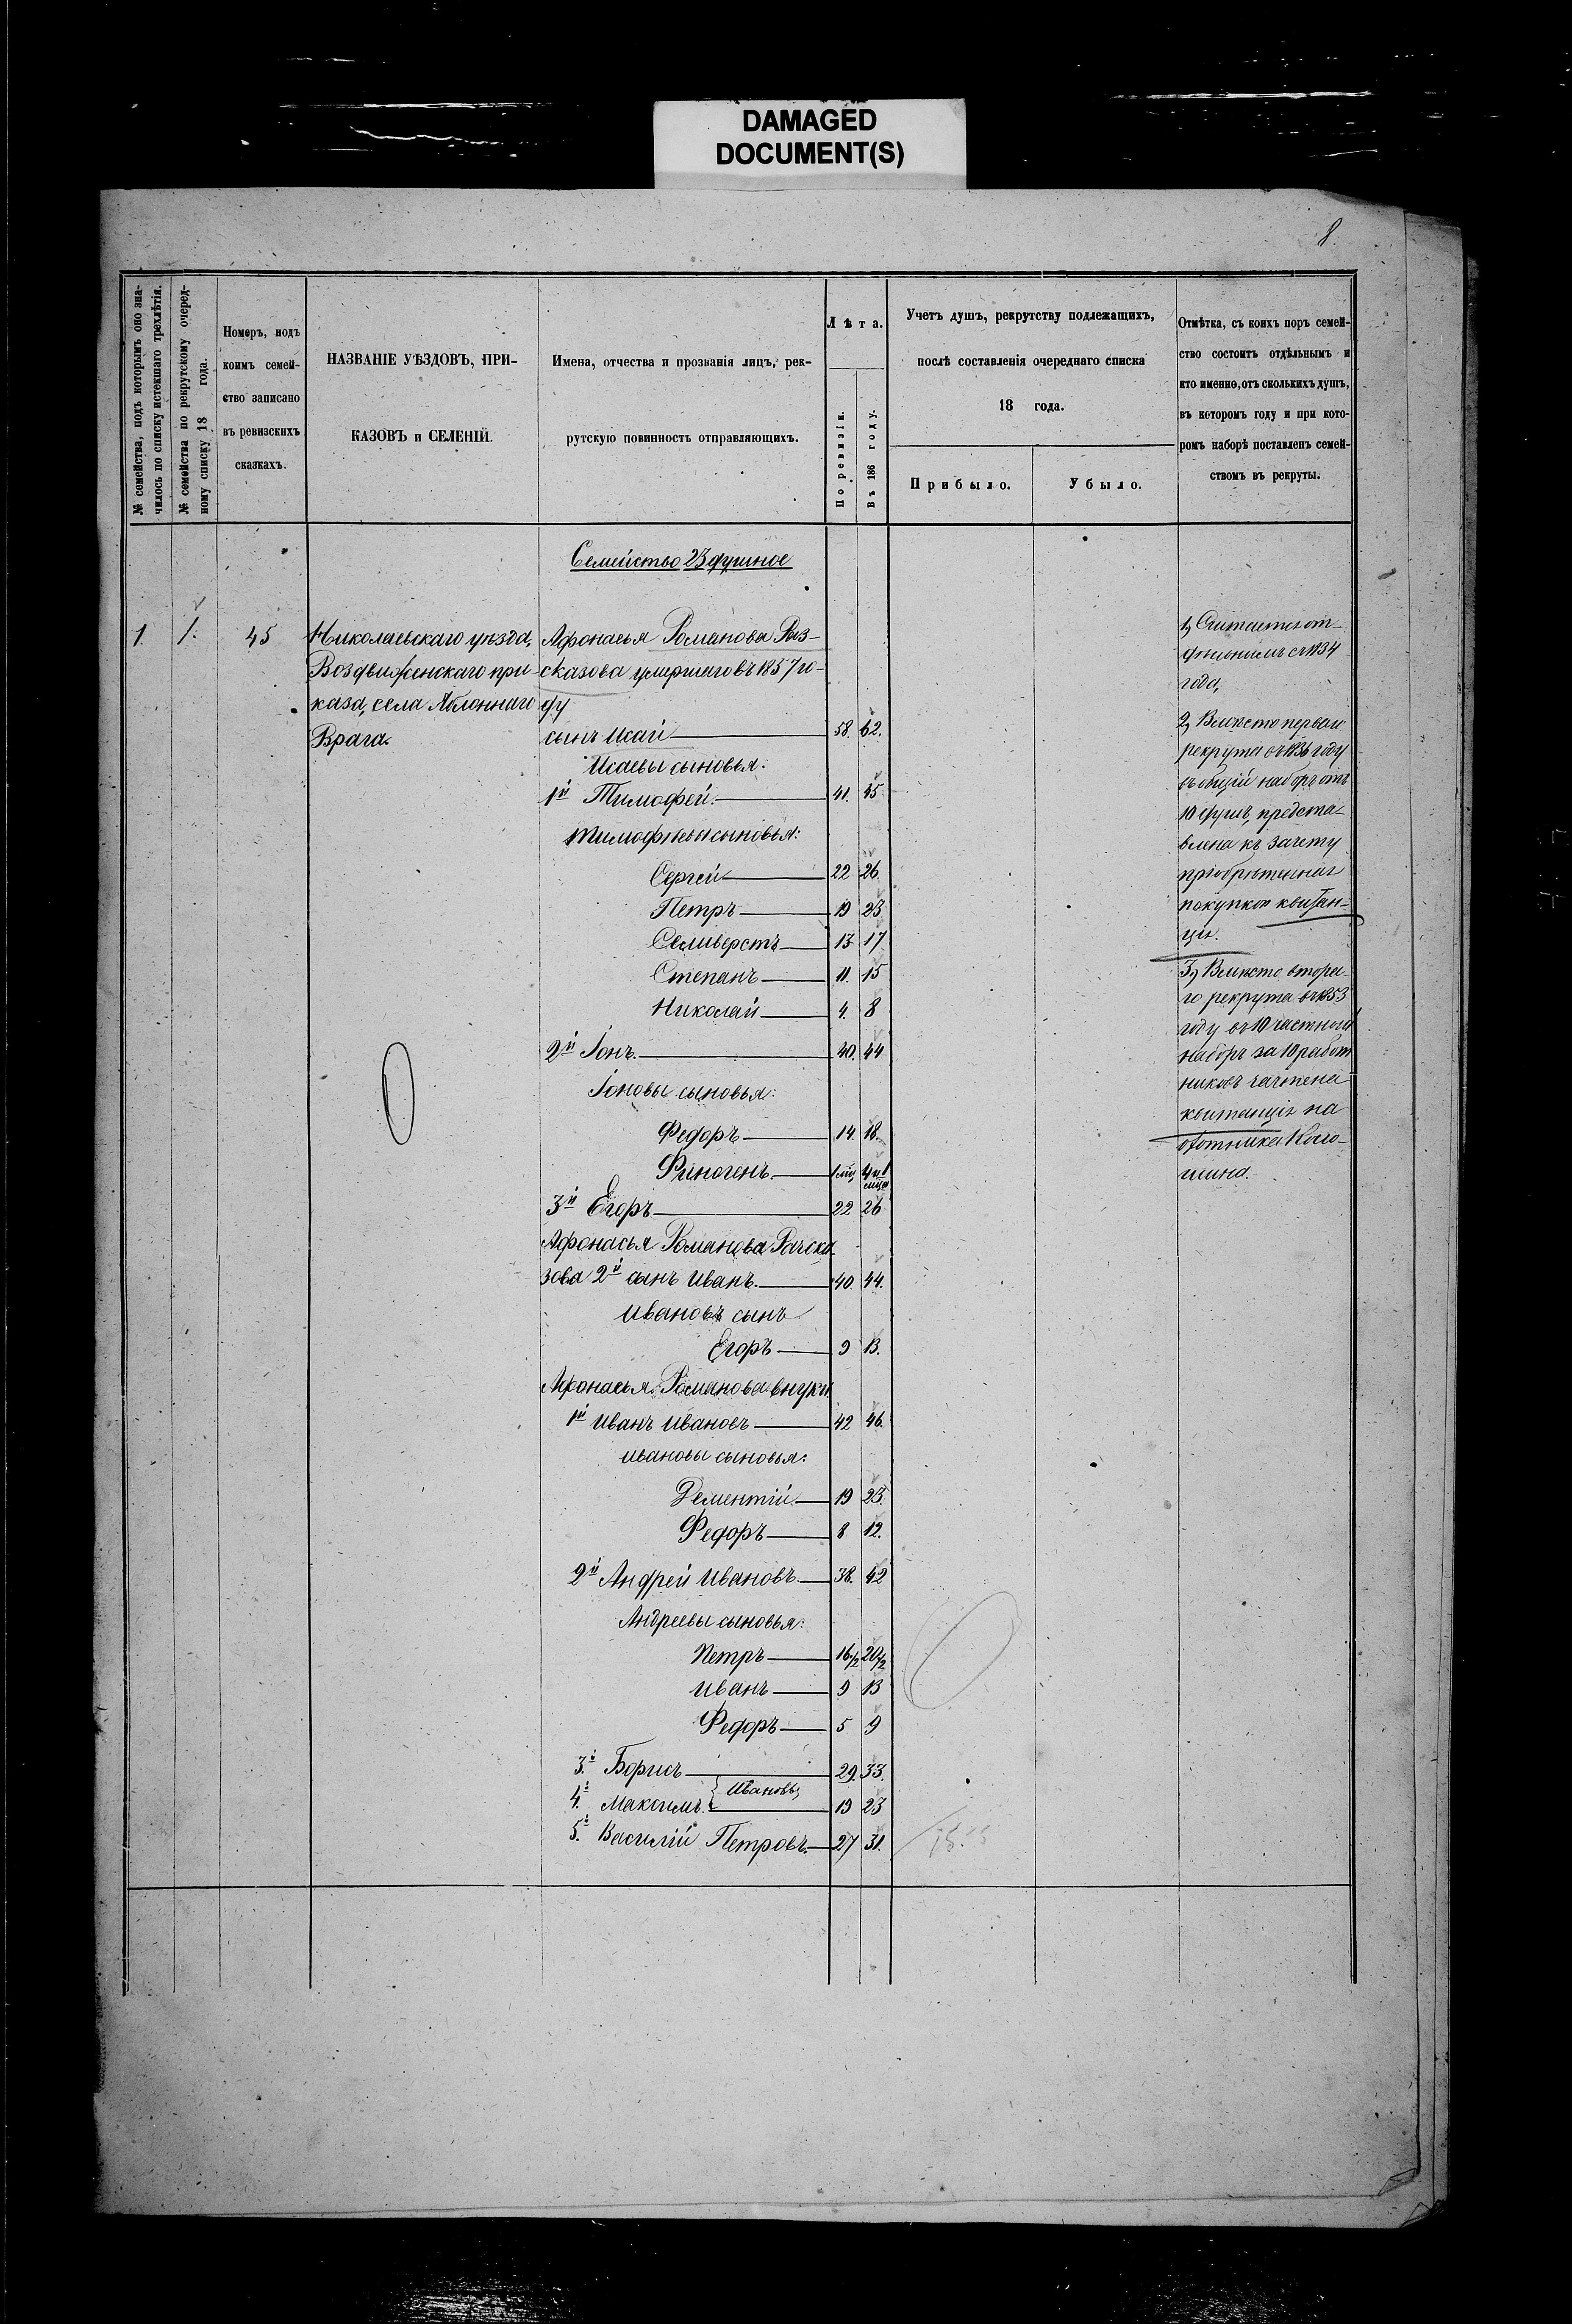 DAMAGED
DOCUMENT(S)
8.
№ семейства, подъ которымъ оно зна-
чилось по списку истекшаго трехлѣтія.
№ семейства по рекрутскому очеред-
ному списку 18 года.
Номеръ, подъ
коимъ семей-
ство записано
въ ревизскихъ
сказкахъ.
НАЗВАНІЕ УѢЗДОВЪ, ПРИ-
КАЗОВЪ и СЕЛЕНІЙ.
Имена, отчества и прозванія лицъ, рек-
рутскую повинность отправляющихъ.
Лѣта.
По ревизіи.
Въ 186 году.
Учетъ душъ, рекрутству подлежащихъ,
послѣ составленія очереднаго списка
18 года.
Прибыло.
Убыло.
Отмѣтка, съ коихъ поръ семей-
ство состоитъ отдѣльнымъ и
кто именно, отъ сколькихъ душъ,
въ которомъ году и при кото-
ромъ наборѣ поставленъ семей-
ствомъ въ рекруты.
Семейство 23 душное
1. 1. 45
Николаевскаго уѣзда,
Воздвиженскаго при-
каза, села Яблоннаго
Врага.
Афонасья Романова Раз-
сказова умершаго въ 1857 го-
ду
сынъ Исай 58. 62.
Исаевы сыновья:
1й Тимофей. 41. 45
Тимофѣевы сыновья:
Сергей 22 26
Петръ 19 23
Селиверстъ 13 17
Степанъ 11. 15
Николай 4. 8
2й Іонъ. 40. 44
Іоновы сыновья:
Федоръ 14. 18.
Финогенъ. 1 мц 4 и 1
мца
3й Егоръ 22 26
Афонасья Романова Расска
зова 2й сынъ Иванъ. 40. 44.
Ивановъ сынъ
Егоръ 9 13.
Афонасья Романова внуки
1й Иванъ Ивановъ 42 46.
Ивановы сыновья:
Дементій. 19 23.
Федоръ 8 12.
2й Андрей Ивановъ. 38. 42
Андреевы сыновья:
Петръ 16 1/2 20 1/2
Иванъ 9 13
Федоръ 5 9
3.й Борисъ 29. 33.
Ивановы
4.й Максимъ. 19 23
5.й Василій Петровъ. 27 31.
1, Считается от-
дѣльнымъ съ 1834
года,
2, Вмѣсто перваго
рекрута въ 1836 году
въ общій наборъ отъ
10 душъ, предста-
влена къ зачету
пріобрѣтенная
покупкою квитан-
ція.
3, Вмѣсто втора-
го рекрута въ 1853
году въ 10 частной
наборъ за 10 работ
никовъ зачтена
квитанція на
охотника